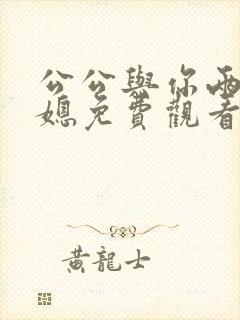 公公與你兩
媳免費觀看
黃龍士